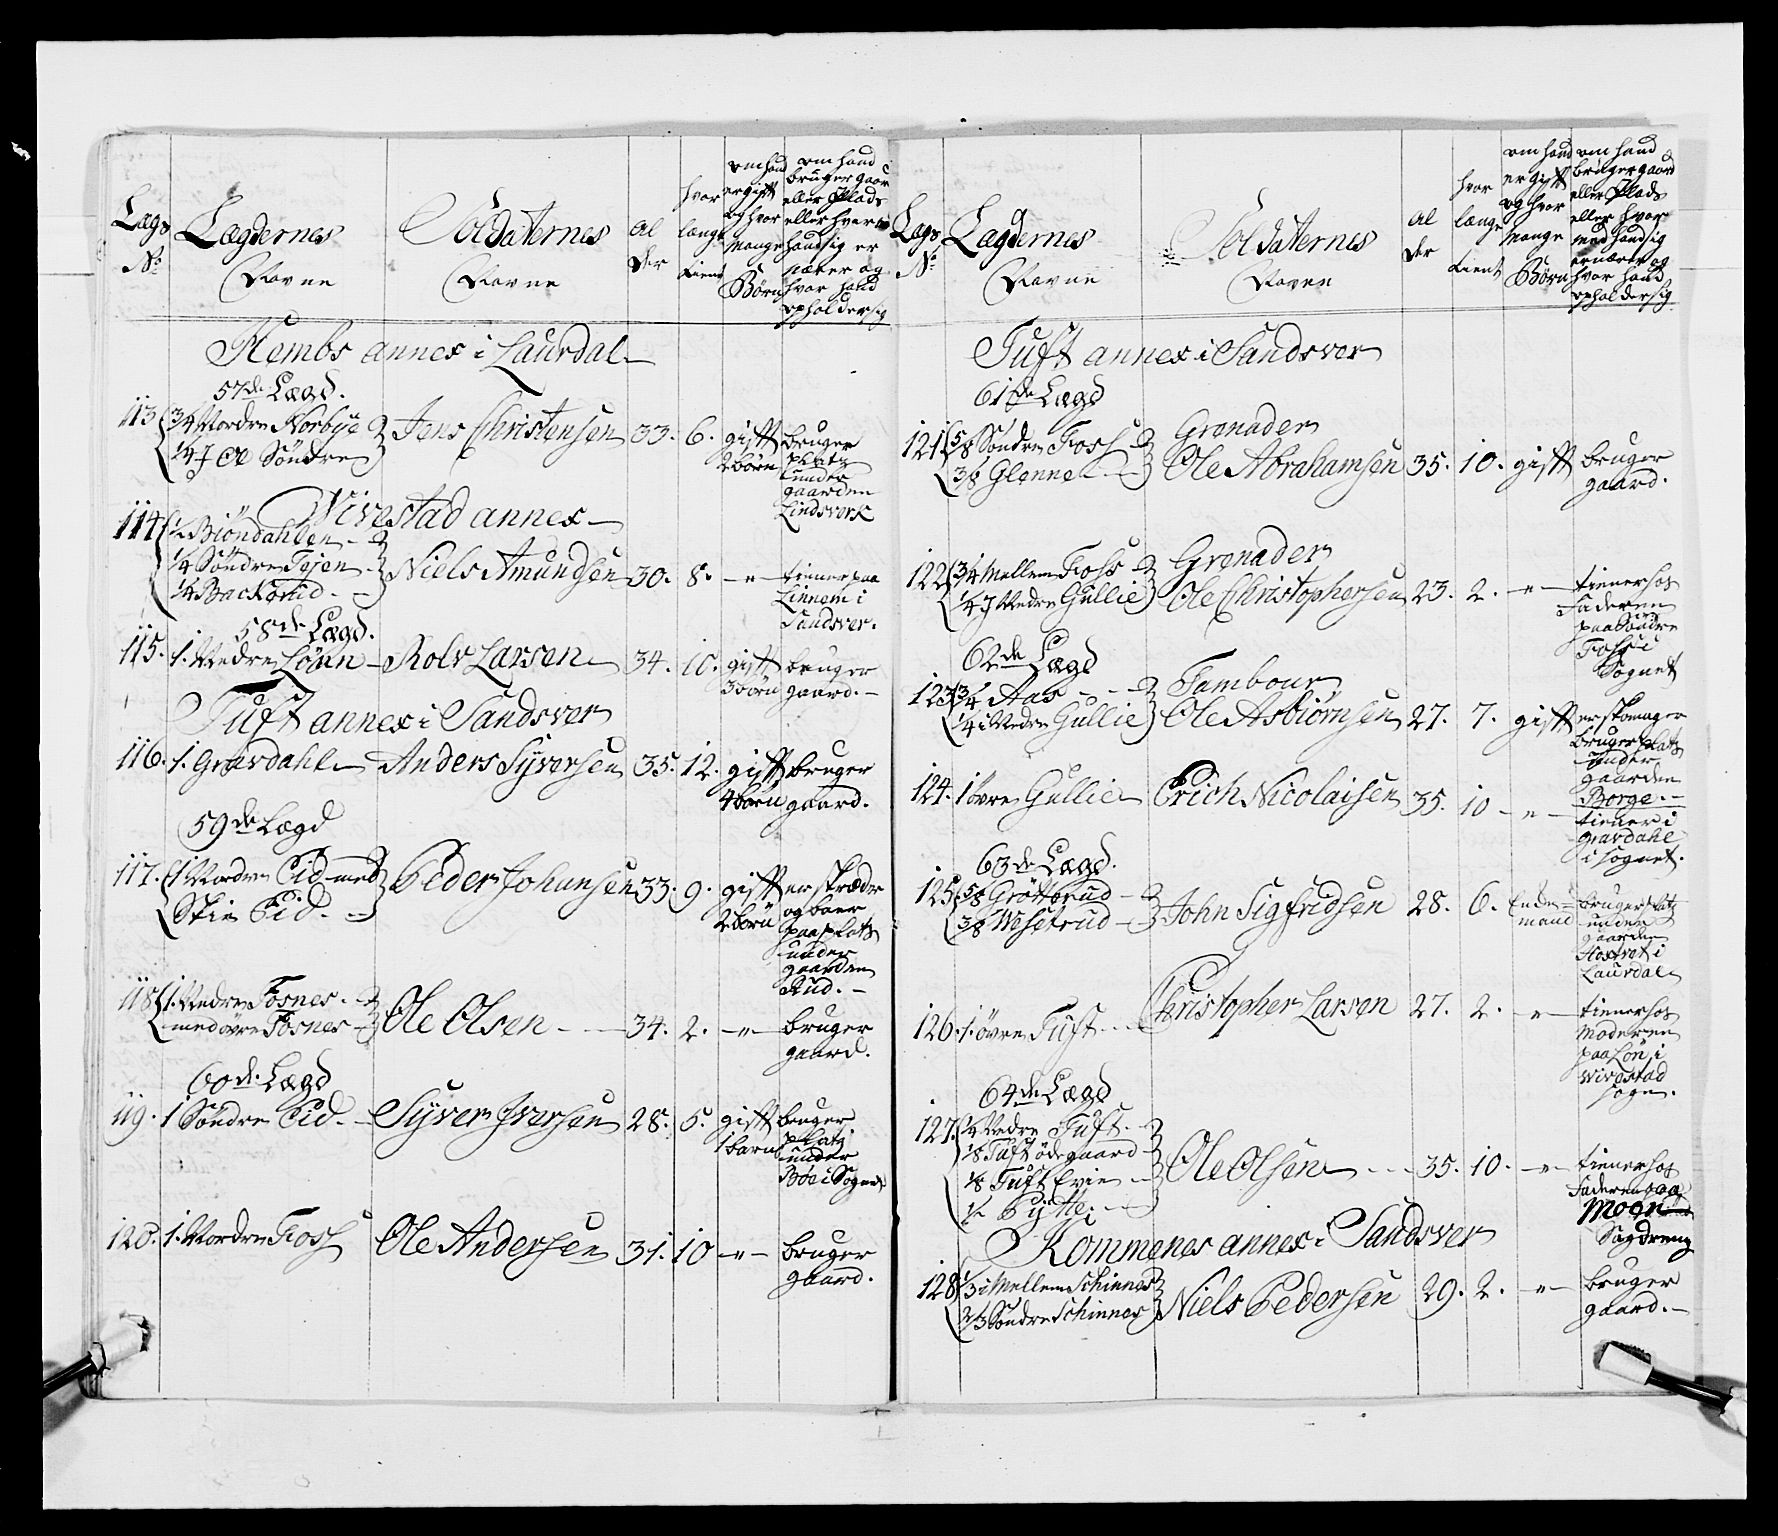 Lægs No
Lægdernes Navne
Soldaternes Navne
al der
hvor længe tient
om hand er gift og hvor mange Børn
om hand bruger gaar eller Plads eller hver hand sig er nærer og hvor hand opholder sig
Hembs annex i Laurdal
57de Lægd.
113 3/4 Nordre Korbye 1/4 J Øl Söndre Jens Christensen 33. 6. gift 2 börn bruger platz under gaarden Lindsverk
Vivestad annex
114 1/2 Biöndahlen 1/4 Söndre Tyjen 1/4 Backerud Niels Amundsen 30. 8. -"- tiener paa Linnem i Sandsver.
58de Lægd.
115. 1. Nedre Lönn Rolv Larsen 34. 10. gift 3 börn bruger gaard.
Tuft annex i Sandsver
116. 1. Gravdahl Anders Syversen 35. 12. gift 4 börn bruger gaard.
59de Lægd
117. 1 Nordre Eid med Skie Eid. Peder Johansen 33. 9. gift 2 börn er skrædr og boer paa plats under gaarden Rud.
118 1. Nedre Fosnes med övre Fosnes Ole Olsen 34. 2. -"- bruger gaard.
60de Lægd
119. 1 Söndre Eid. Syver Iversen 28. 5. gift 1 barn bruger platz under Böe i Sognet
120. 1. Nordre Foss Ole Andersen 31. 10 -"- bruger gaard.
Lægs No
Lægdernes Navne
Soldaternes Navne
al der
hvor længe tient
om hand er gift og hvor mange Börn
om hand bruger gaard eller Plads eller hvor med hand sig ernærer og hvor hand opholder sig
Tuft annex i Sandsver
61de Lægd
121 5/8 Söndre Foss 3/8 Glenne Grenader Ole Abrahamsen 35. 10. gift bruger gaard.
122 3/4 Mellem Foss 1/4 J Nedre Gullie Grenader Ole Christophersen 23. 2. -"- tiener hos Faderen paa Söndre Foss i Sognet
62de Lægd
123 3/4 Aas 1/4 i Nedre Gullie Tambour Ole Asbiörnsen 27. 7. gift er skomager bruger plats under gaarden Borge.
124. 1 övre Gullie Erich Nicolaisen 35. 10 -"- tiener i gravdahl i sognet.
63de Lægd.
125 5/8 Gröttbrud 3/8 Wesetrud John Sigfridsen 28. 6. Enke mand bruger platz under gaarden i Laurdal
126. 1. övre Tuft Christopher Larsen 27. 2. -"- tiener hos Moderen paa Lön i Wivestad sogn.
64de Lægd
127. 1/4 Nedre Tuft. 1/8 Tuft ödegaard 1/8 Tuft Evie 1/2 Pytte. Ole Olsen 35. 10. -"- tiener hos Faderen paa Moen Sagdreng
Kommenes annex i Sandsver
128 1/3 i Mellem Schinnes 2/3 Söndre Schinnes Niels Pedersen 29. 2. -"- bruger gaard.